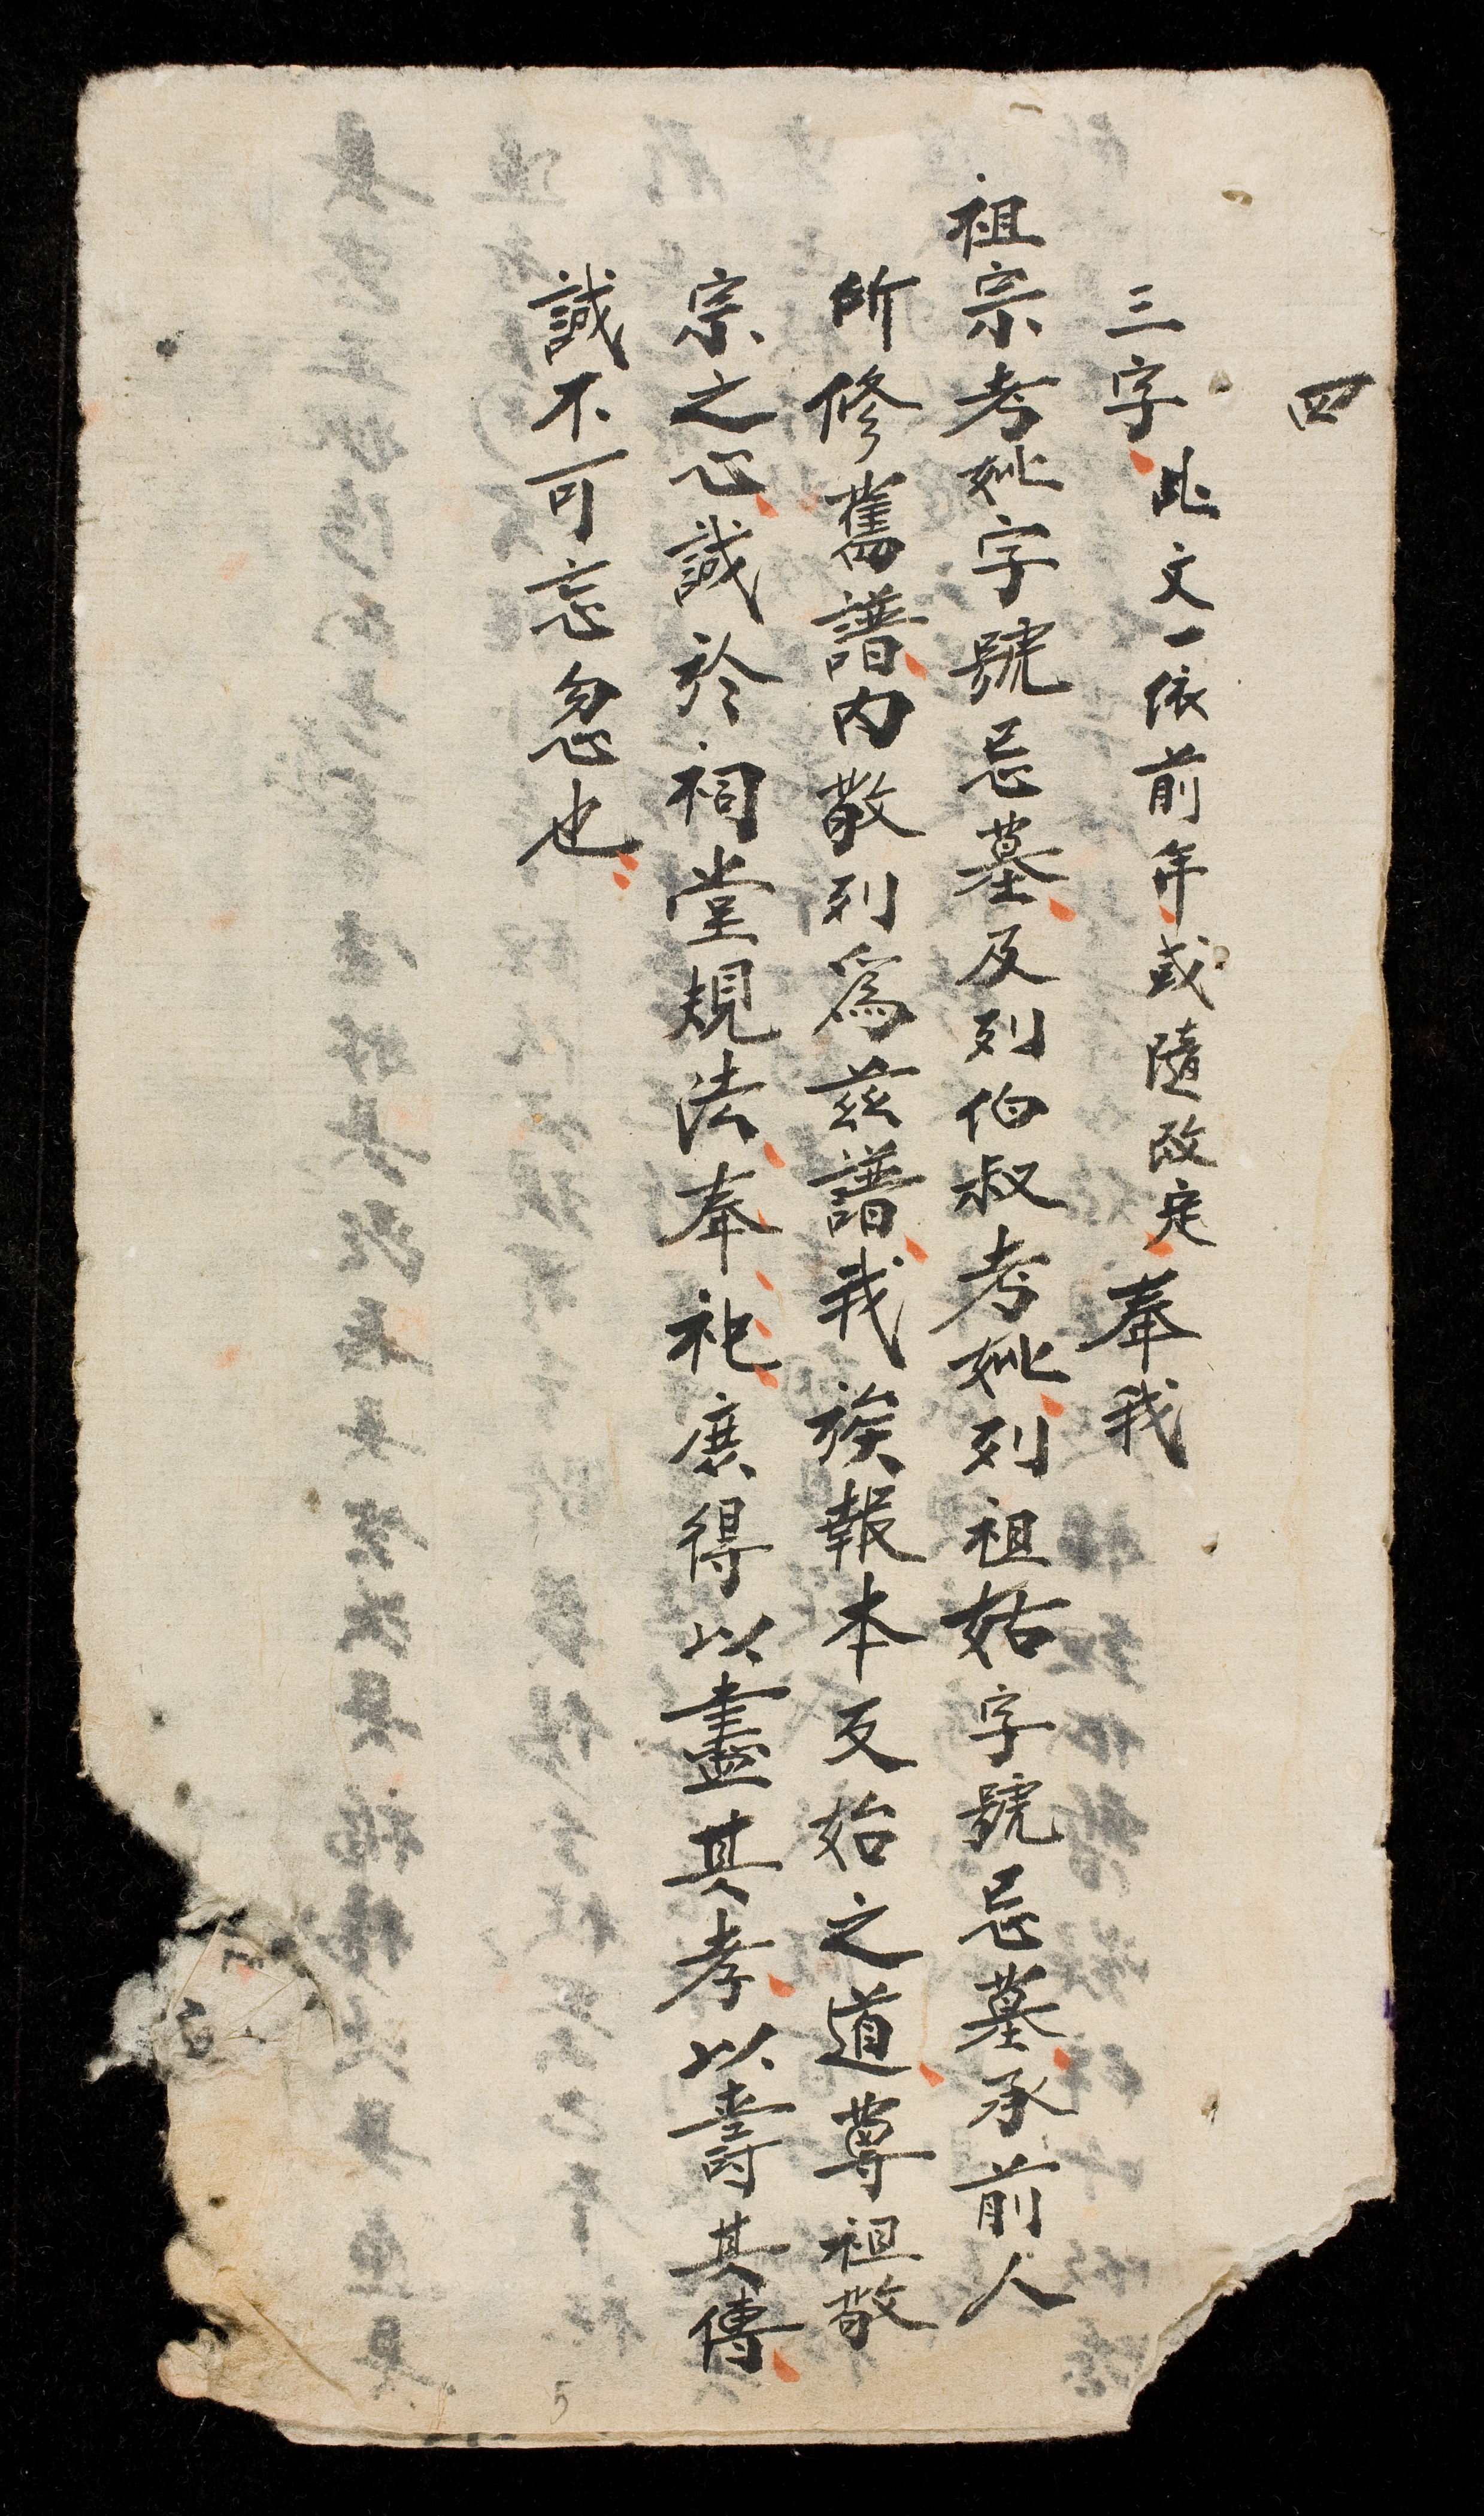 四
三字此文一依前年或隨改定奉我
祖宗考妣字號忌墓及列伯叔考妣列祖姑字號忌墓承前人
所修舊譜内敬列爲茲譜我族報本反始之道尊祖敬
宗之心誠於祠堂規法奉祀庶得以盡其孝以壽其傳
誠不可忘忽也
5